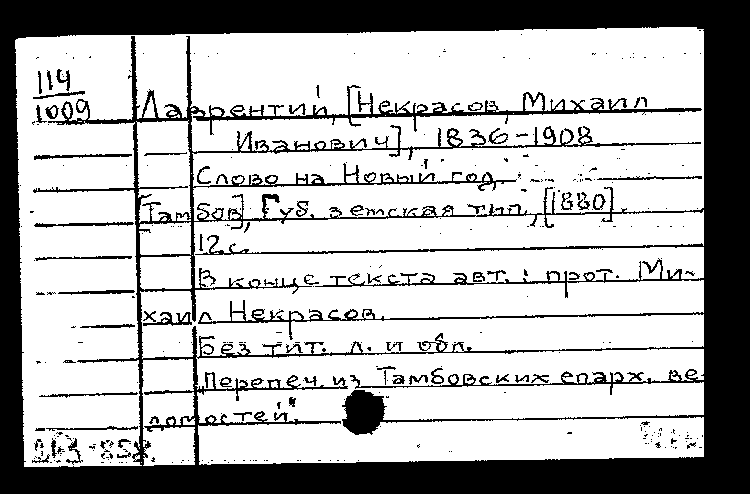 114
1009
Лаврентий, [Некрасов, Михаил
Иванович], 1836-1908.
Слово на Новый год.
[Тамбов], Губ. земская тип., [1880].
12 с.
В конце текста авт.: прот. Ми-
хаил Некрасов.
Без тит. л. и обл.
"Перепеч. из Тамбовских епарх. ве-
домостей".